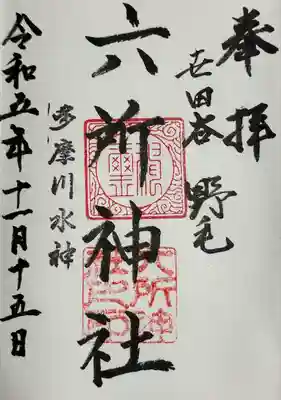 奉拝
世田谷 野毛
六所神社
多摩川水神
令和五年十一月十五日